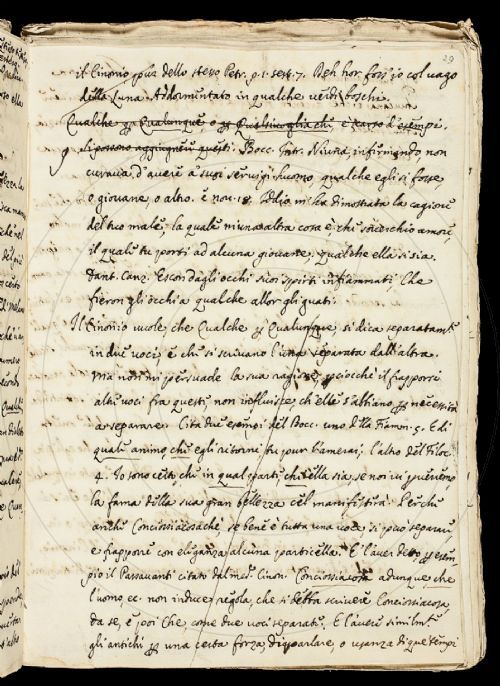 29
il Cinonio p̱ che dello stesso Petr. p. 1. sest. 7. Deh hor foss'io col vago
della Luna Addormentato in qualche verdi boschi.
Qualche p̱ Qualunque o p̱ Qualsivoglia chi, è scarso d'esempi.
Si possono aggiugnere questi. Bocc. Intr. Niuna, infirmando, non
curava d'avere a' suoi servigi huomo, qualche egli si fosse,
o giovane, o altro. e nov. 18. Iddio m'ha dimostrata la cagione
del tuo male, la quale niuna altra cosa è che soverchio amore,
il quale tu porti ad alcuna giovane, qualche ella si sia.
Dant. Canz. Escon dagli occhi suoi spirti infiammati Che
fieron gli occhi a qualche allor gli guati.
Il Cinonio vuole, che Qualche p̱ Qualunque, si dica separatamte
in due voci, e che si scrivano l'una separata dall'altra.
Ma non mi persuade la sua ragione, p̱ciocchè il frapporsi
altre voci fra queste, non influisce, ch'elle s'abbiano p̱ necessità
a separare. Cita due esempi del Bocc. uno della Fiam. 5. E di
quale animo, che egli ritorni, tu pur l'amerai; l'altro del Filoc.
4. Io sono certo, che in qual parte, che ella sia, se noi vi perveremo
la fama della sua gran bellezza cel manifesterà. Perchè
anche Conciossiecosachè se bene è tutta una voce si può separare,
e frapporre con eleganza alcuna particella. E l'aver detto p̱ esem
pio il Passavanti citato dal med. Cinon. Conciossiacosa adunque, che
l'uomo, ec. non induce regola, che si debba scrivere Conciossiacosa
da se, e poi Che, come due voci separate. E l'avere similmte
gli antichi p̱ una certa forza di parlare, o usanza di que' tempi